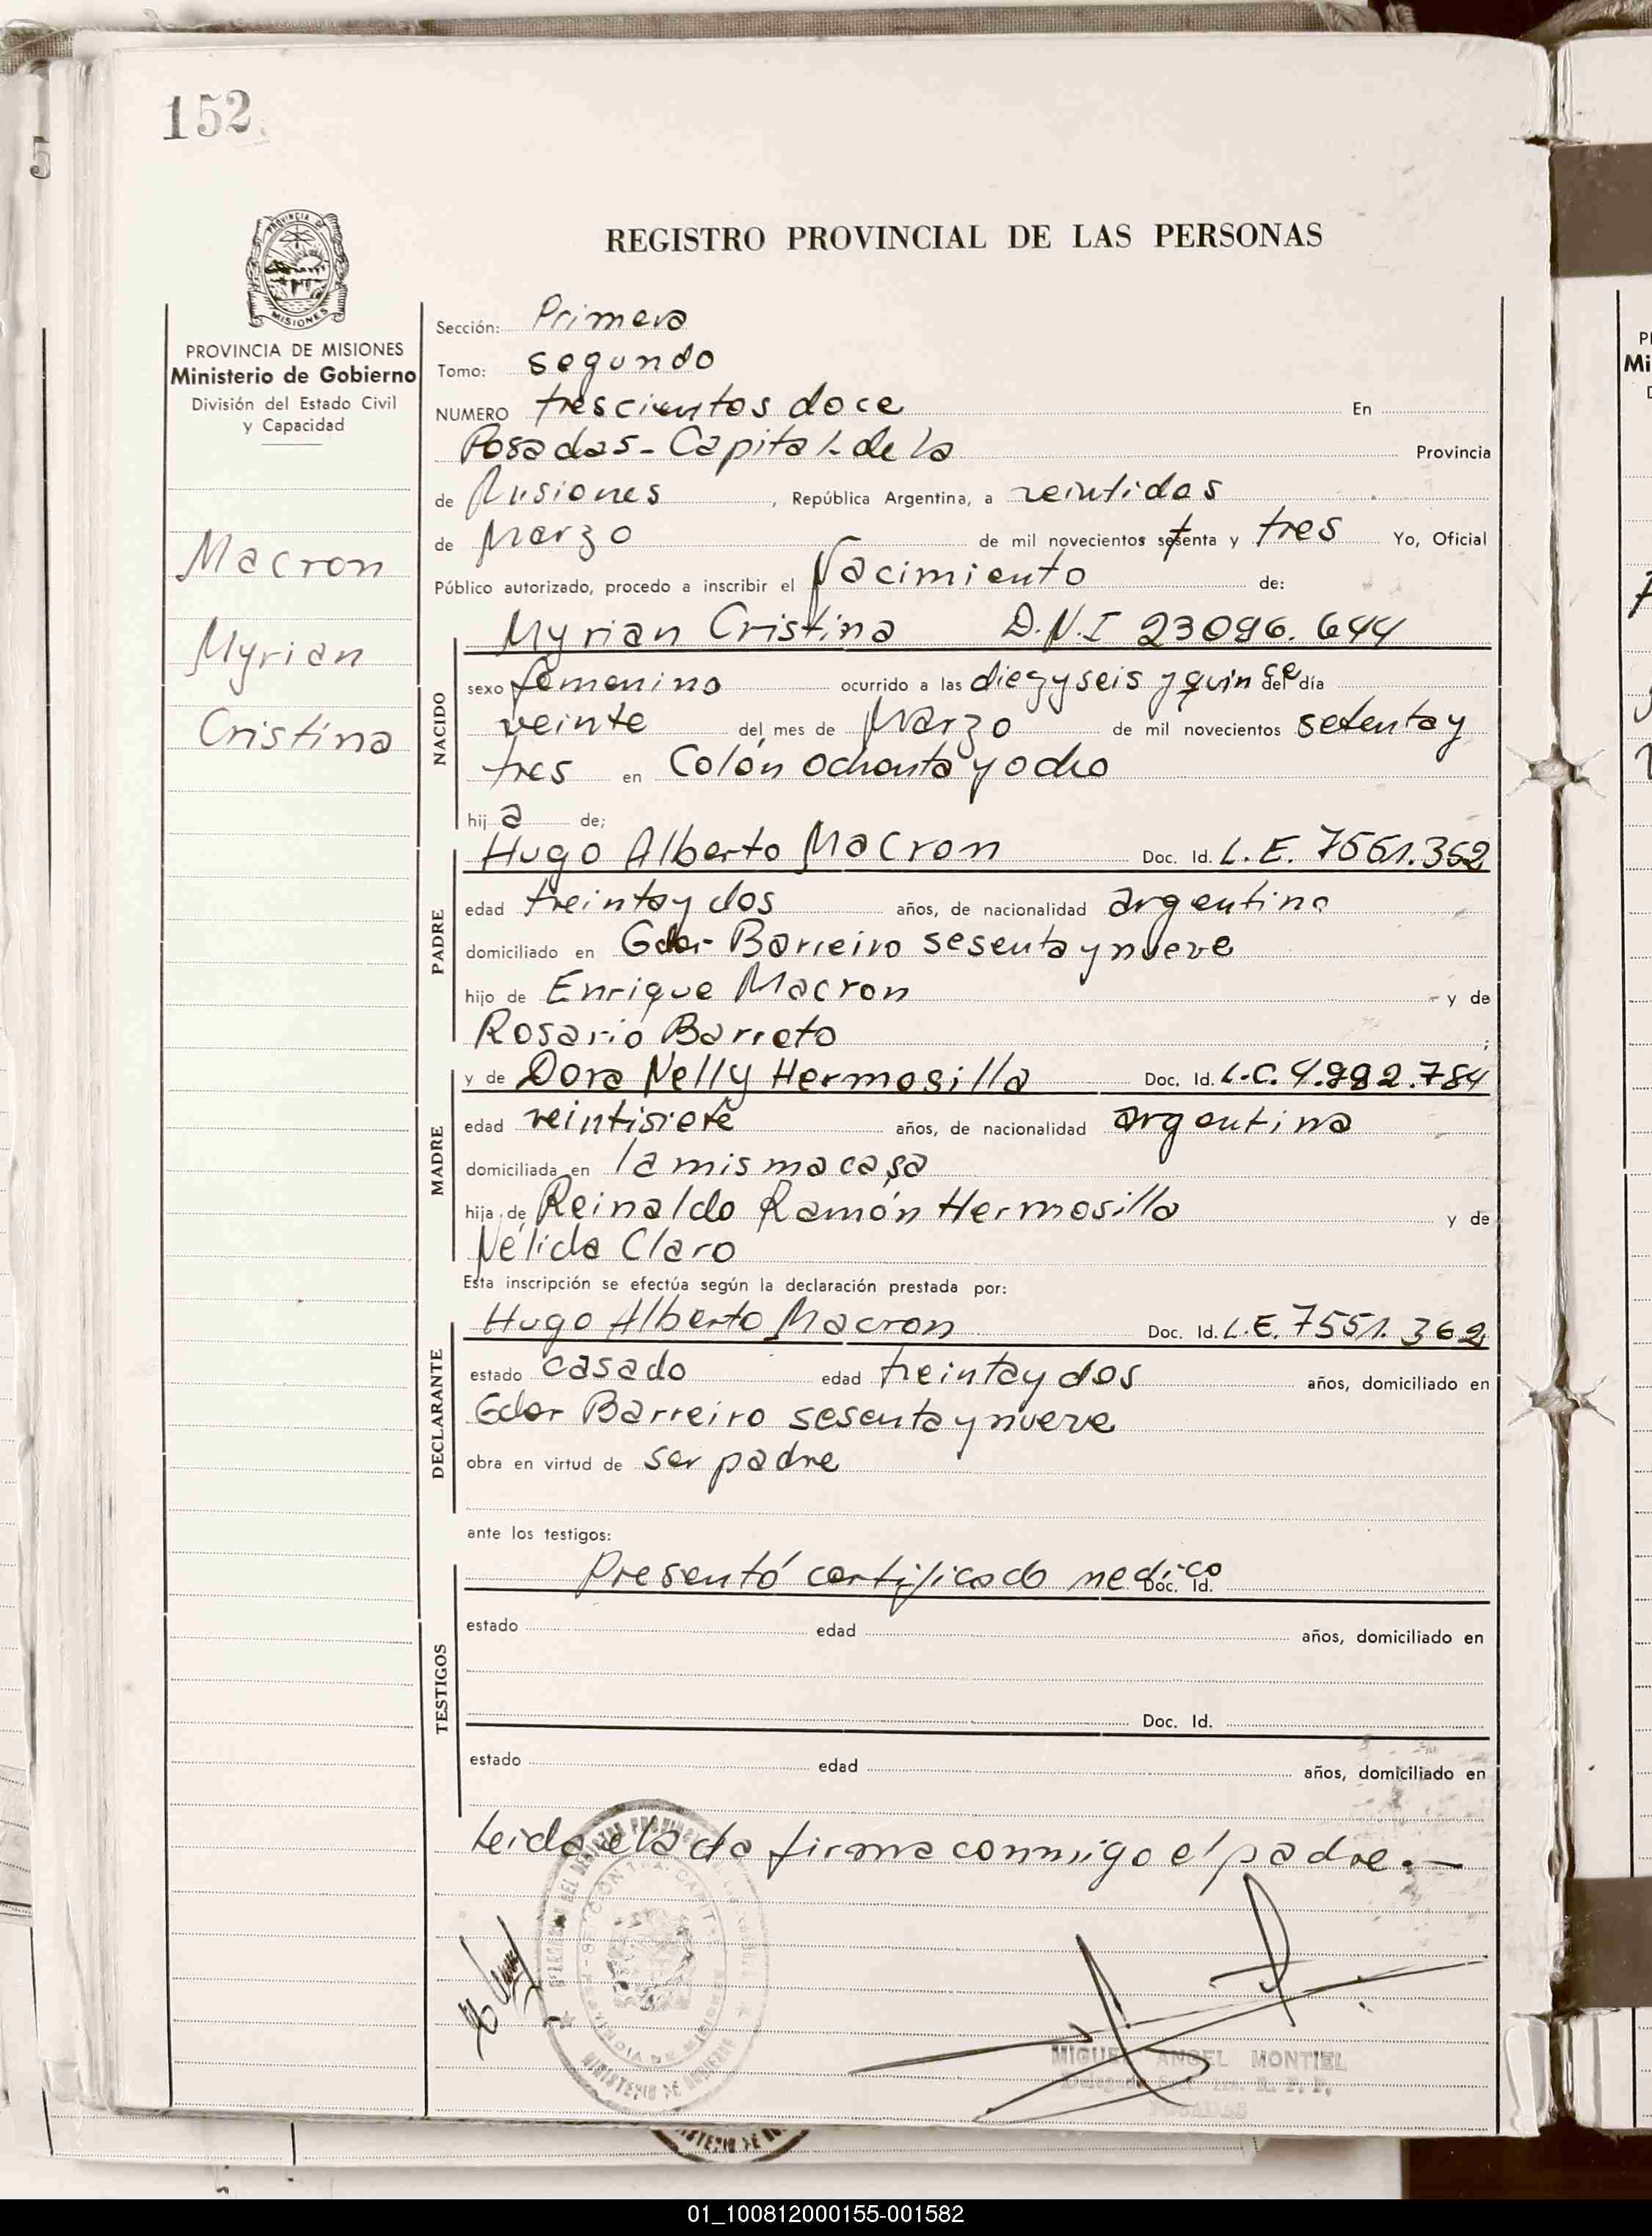 152
REGISTRO PROVINCIAL DE LAS PERSONAS
PROVINCIA DE MISIONES
Ministerio de Gobierno
División del Estado Civil
y Capacidad
Macron
Myrian
Cristina
Sección: Primera
Tomo: segundo
NUMERO trescientos doce En
Posadas - Capital de la Provincia
de Misiones, República Argentina, a veintidos
de Marzo de mil novecientos setenta y tres Yo, Oficial
Público autorizado, procedo a inscribir el Nacimiento de:
NACIDO
Myrian Cristina D.N.I 23096.644
sexo femenino ocurrido a las diez y seis y quince del día
veinte del mes de Marzo de mil novecientos setenta y
tres en Colón ochenta y ocho
hij a de;
PADRE
Hugo Alberto Macron Doc. Id. L.E. 7551.362
edad treinta y dos años, de nacionalidad argentino
domiciliado en Gdor Barreiro sesenta y nueve
hijo de Enrique Macron y de
Rosario Barreto ;
MADRE
y de Dora Nelly Hermosilla Doc. Id. L.C. 4.992.784
edad veintisiete años, de nacionalidad argentina
domiciliada en la misma casa
hija de Reinaldo Ramón Hermosilla y de
Nélida Claro
Esta inscripción se efectúa según la declaración prestada por:
DECLARANTE
Hugo Alberto Macron Doc. Id. L.E. 7551.362
estado casado edad treinta y dos años, domiciliado en
Gdor Barreiro sesenta y nueve
obra en virtud de ser padre
ante los testigos:
TESTIGOS
Presentó certificado medico Doc. Id.
estado edad años, domiciliado en
Doc. Id.
estado edad años, domiciliado en
Leida el acta firma conmigo el padre.—
MIGUEL ANGEL MONTIEL
POSADAS
01_100812000155-001582